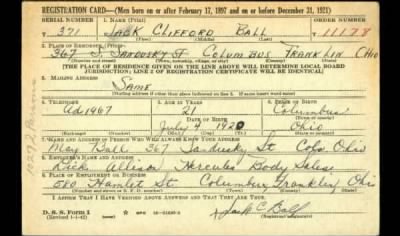 REGISTRATION CARD—(Men born on or after February 17, 1897 and on or before December 31, 1921)
SERIAL NUMBER 1. NAME (Print) ORDER NUMBER
T 371 JACK CLIFFORD BALL 11178
2. PLACE OF RESIDENCE (Print)
367 S. SANDUSKY ST COLUMBUS FRANKLIN OHIO
(Town, township, village, or city) (County) (State)
[THE PLACE OF RESIDENCE GIVEN ON THE LINE ABOVE WILL DETERMINE LOCAL BOARD
JURISDICTION; LINE 2 OF REGISTRATION CERTIFICATE WILL BE IDENTICAL]
3. MAILING ADDRESS
SAME
[Mailing address if other than place indicated on line 2. If same insert word same]
4. TELEPHONE 5. AGE IN YEARS 6. PLACE OF BIRTH
Ad 1967 21 Columbus
DATE OF BIRTH
July 4 1920 Ohio
(Mo.) (Day) (Yr.)
7. NAME AND ADDRESS OF PERSON WHO WILL ALWAYS KNOW YOUR ADDRESS
Ball 367 Sandusky St Cols. Ohio
8. EMPLOYER'S NAME AND ADDRESS
Allison Hercules Body Sales
9. PLACE OF EMPLOYMENT OR BUSINESS
580 Hamlet St. Columbus, Franklin Ohio
I AFFIRM THAT I HAVE VERIFIED ABOVE ANSWERS AND THAT THEY ARE TRUE.
D. S. S. Form 1
(Revised 1-1-42)
Jack C Ball